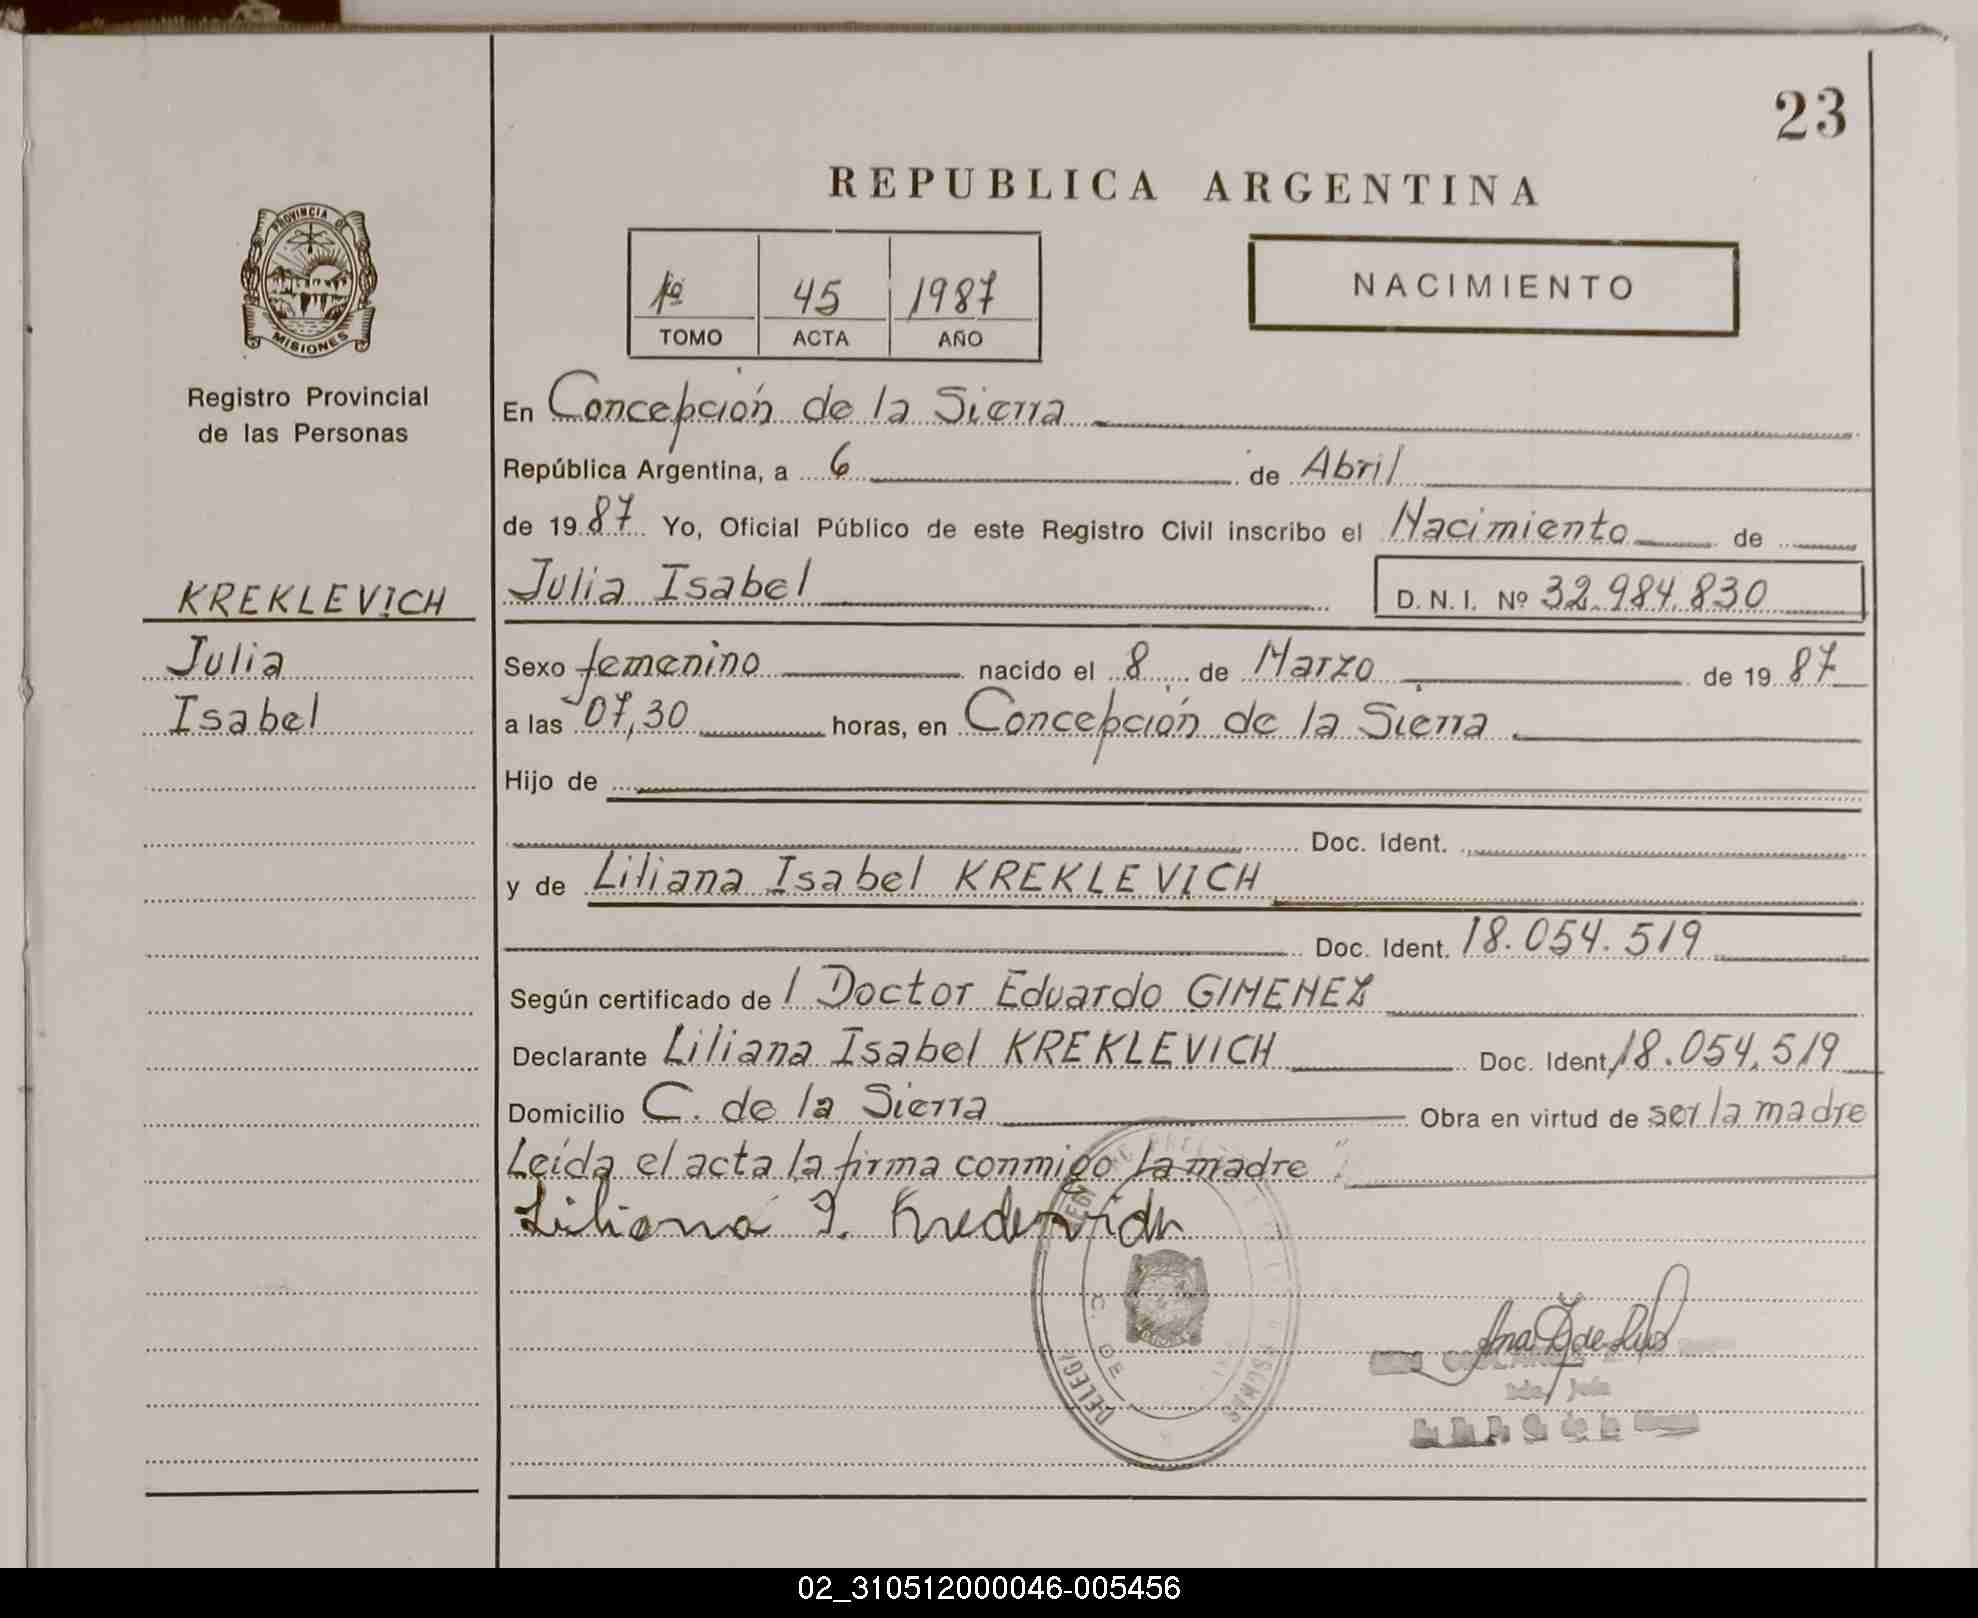 23
REPUBLICA ARGENTINA
PROVINCIA DE
MISIONES
Registro Provincial
de las Personas
1º 45 1987
TOMO ACTA AÑO
NACIMIENTO
En Concepción de la Sierra
República Argentina, a 6 de Abril
de 1987 Yo, Oficial Público de este Registro Civil inscribo el Nacimiento de
KREKLEVICH
Julia
Isabel
Julia Isabel D. N. I. Nº 32.984.830
Sexo femenino nacido el 8 de Marzo de 1987
a las 07,30 horas, en Concepción de la Sierra
Hijo de
Doc. Ident.
y de Liliana Isabel KREKLEVICH
Doc. Ident. 18.054.519
Según certificado de l Doctor Eduardo GIMENEZ
Declarante Liliana Isabel KREKLEVICH Doc. Ident. 18.054.519
Domicilio C. de la Sierra Obra en virtud de ser la madre
Leída el acta la firma conmigo la madre
Liliana I. Kreklevich
C. DE
02_310512000046-005456